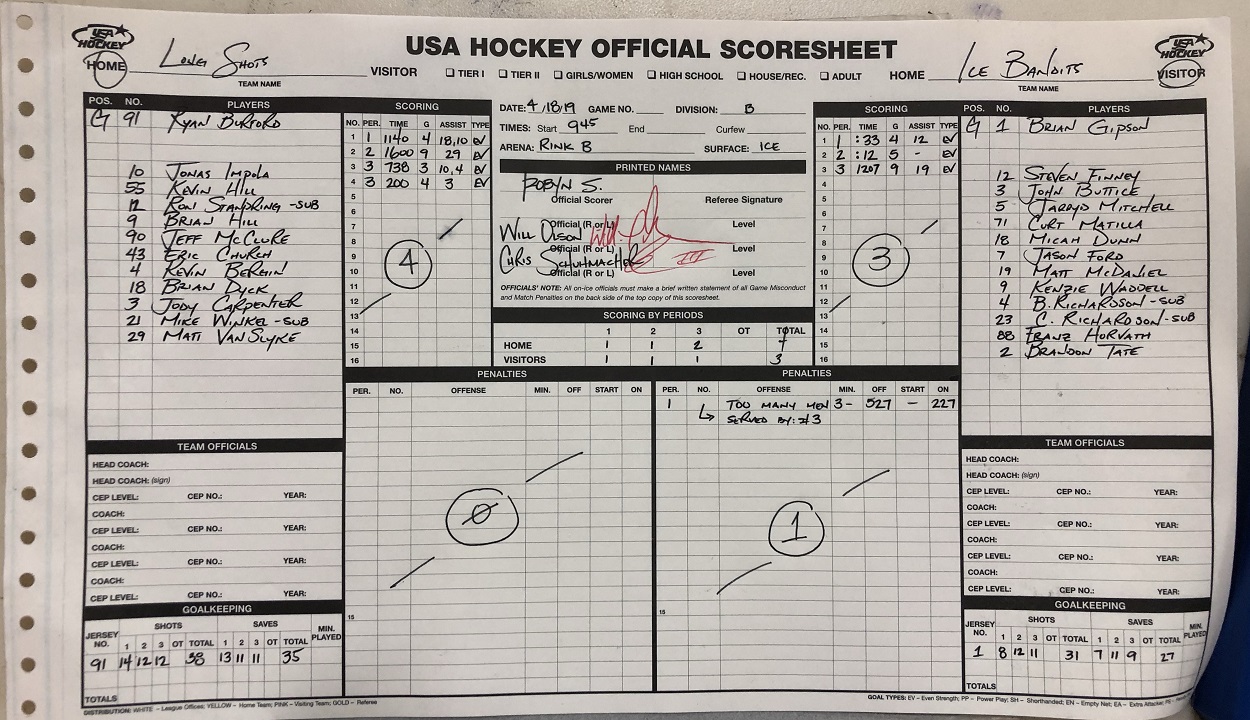 USA HOCKEY OFFICIAL SCORESHEET
USA HOCKEY
HOME
LONG SHOTS
TEAM NAME
VISITOR
☐ TIER I ☐ TIER II ☐ GIRLS/WOMEN ☐ HIGH SCHOOL ☐ HOUSE/REC. ☐ ADULT
HOME
ICE BANDITS
TEAM NAME
USA HOCKEY
VISITOR
POS. NO. PLAYERS
G 91 RYAN BURFORD
10 JONAS IMPOLA
55 KEVIN HILL
12 RONI STANDRING -SUB
9 BRIAN HILL
90 JEFF MCCLURE
43 ERIC CHURCH
4 KEVIN BEREIN
18 BRIAN DYCK
3 JODY CARPENTER
21 MIKE WINKEL -SUB
29 MATT VANSLYKE
SCORING
NO. PER. TIME G ASSIST TYPE
1 1 1140 4 18,10 EV
2 2 1600 9 29 EV
3 3 738 3 10,4 EV
4 3 200 4 3 EV
5
6
7
8
9
10
11
12
13
14
15
16
4
DATE: 4/18/19 GAME NO. DIVISION: B
TIMES: Start 945 End Curfew
ARENA: RINK B SURFACE: ICE
PRINTED NAMES
ROBYN S.
Official Scorer Referee Signature
WILL OLSON
Official (R or L) Level
CHRIS SCHUHMACHER
Official (R or L) Level
III
Official (R or L) Level
OFFICIALS' NOTE: All on-ice officials must make a brief written statement of all Game Misconduct
and Match Penalties on the back side of the top copy of this scoresheet.
SCORING BY PERIODS
1 2 3 OT TOTAL
HOME 1 1 2 4
VISITORS 1 1 1 3
SCORING
NO. PER. TIME G ASSIST TYPE
1 1 :33 4 12 EV
2 2 :12 5 - EV
3 3 1207 9 19 EV
4
5
6
7
8
9
10
11
12
13
14
15
16
3
POS. NO. PLAYERS
G 1 BRIAN GIPSON
12 STEVEN FINNEY
3 JOHN BUTTICE
5 JARRYD MITCHELL
71 CURT MATILLA
18 MICAH DUNN
7 JASON FORD
19 MATT MCDANIEL
9 KENZIE WADDELL
4 B. RICHARDSON -SUB
23 C. RICHARDSON -SUB
88 FRANZ HORVATH
2 BRANDON TATE
PENALTIES
PER. NO. OFFENSE MIN. OFF START ON
0
15
PENALTIES
PER. NO. OFFENSE MIN. OFF START ON
1 TOO MANY MEN 3- 527 - 227
↳ SERVED BY: #3
1
15
TEAM OFFICIALS
HEAD COACH:
HEAD COACH: (sign)
CEP LEVEL: CEP NO.: YEAR:
COACH:
CEP LEVEL: CEP NO.: YEAR:
COACH:
CEP LEVEL: CEP NO.: YEAR:
COACH:
CEP LEVEL: CEP NO.: YEAR:
GOALKEEPING
JERSEY NO. SHOTS SAVES MIN. PLAYED
1 2 3 OT TOTAL 1 2 3 OT TOTAL
91 14 12 12 38 13 11 11 35
TOTALS
TEAM OFFICIALS
HEAD COACH:
HEAD COACH: (sign)
CEP LEVEL: CEP NO.: YEAR:
COACH:
CEP LEVEL: CEP NO.: YEAR:
COACH:
CEP LEVEL: CEP NO.: YEAR:
COACH:
CEP LEVEL: CEP NO.: YEAR:
GOALKEEPING
JERSEY NO. SHOTS SAVES MIN. PLAYED
1 2 3 OT TOTAL 1 2 3 OT TOTAL
1 8 12 11 31 7 11 9 27
TOTALS
DISTRIBUTION: WHITE – League Offices; YELLOW – Home Team; PINK – Visiting Team; GOLD – Referee
GOAL TYPES: EV – Even Strength; PP – Power Play; SH – Shorthanded; EN – Empty Net; EA – Extra Attacker;